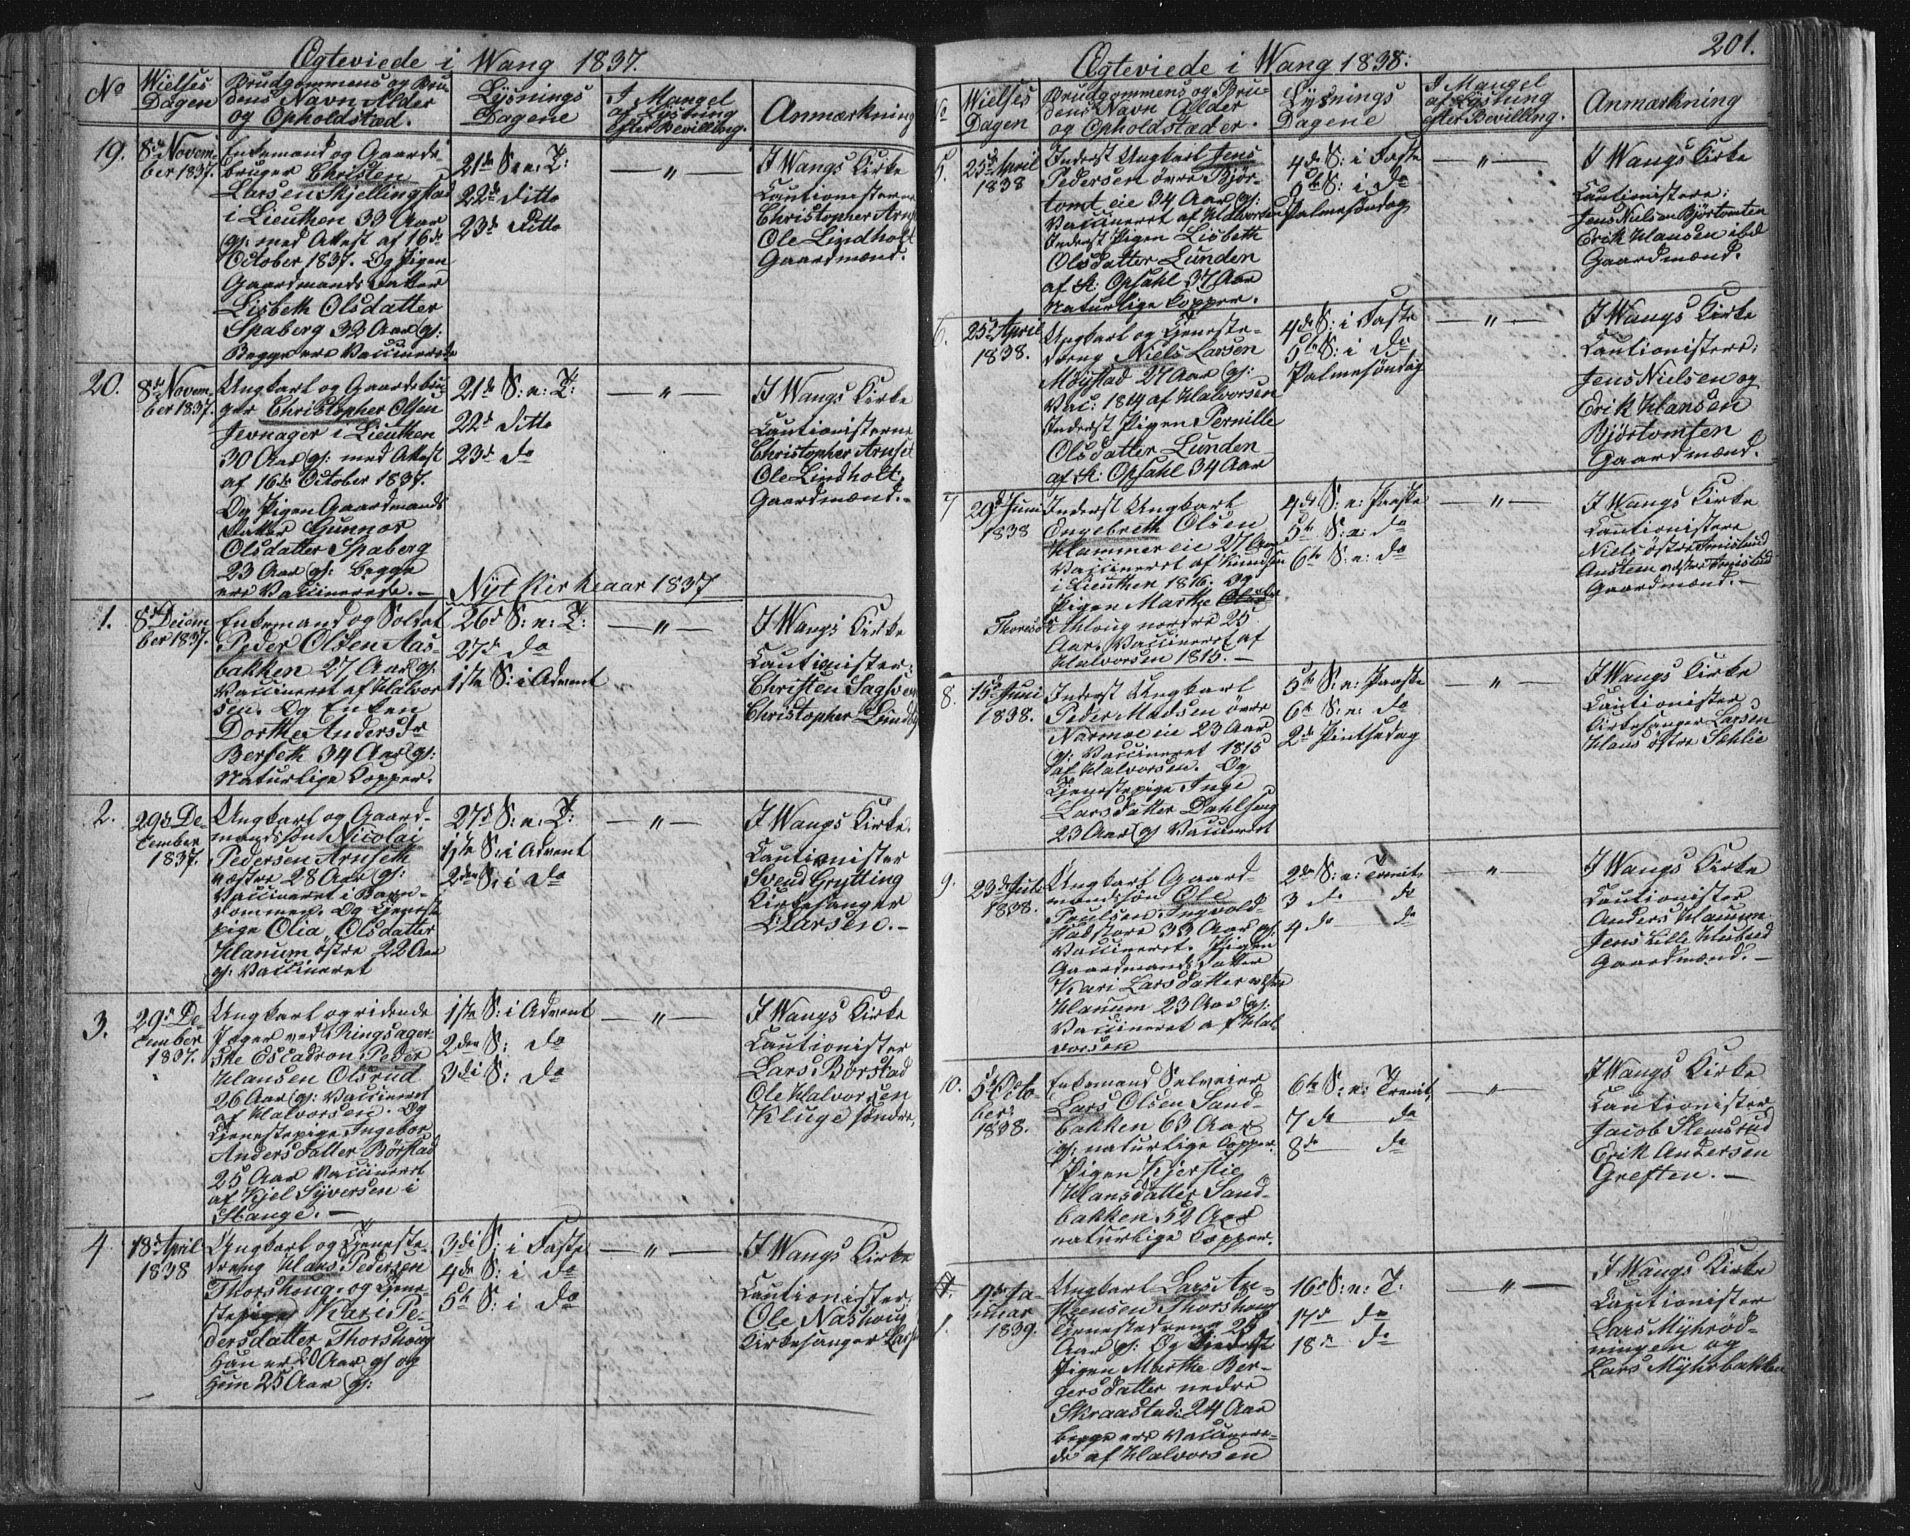 Ægteviede i Wang 1837.
No
Wielses Dagen
Brudgommens og Brudens Navn Alder og Opholdstæd.
Lysnings Dagene
I Mangel af Lysning efter Bevilling.
Anmærkning
19.
8de November 1837.
Enkemand og Gaardbruger Christen
Larsen Skjellingstad
i Lieuthen 33 Aar
gl: med Attest af 16de
October 1837. Og Pigen
Gaardmands Datter
Lisbeth Olsdatter
Spaberg 33 Aar gl:
Begge ere Vaccinerede
21de S: e: T:
22de Ditto
23de Ditto
— „ —
I Wangs Kirke
Cautionisterne
Christopher Arnset
Ole Lindholt
Gaardmænd.
20.
8de November 1837.
Ungkarl og Gaardbruger Christopher Olsen
Jevnager i Lieuthen
30 Aar gl: med Attest
af 16de October 1837.
Og Pigen Gaardmands
Datter Gunnor
Olsdatter Spaberg
23 Aar gl: begge
ere Vaccinerede. —
21de S: e: T:
22de Ditto
23de do
— „ —
I Wangs Kirke
Cautionisterne
Christopher Arnset
Ole Lindholt.
Gaardmænd. -
Nyt Kirkeaar 1837
1.
8de December 1837.
Enkemand og Soldat
Peder Olsen Aasbakken 27 Aar gl:
Vaccineret af Halvorsen. Og Enken
Dorthe Andersdr
Berseth 34 Aar gl:
Naturlige Kopper.
26d S: e: T:
27d do
1ste S: i Advent
— „ —
I Wangs Kirke
Cautionister:
Christen
Christopher
2.
29d December 1837.
Ungkarl og Gaardmandssøn Nicolai
Pedersen Arnseth
væstre 28 Aar gl:
Vaccineret i Barndommen. Og Tjenestepige Olia Olsdatter
Hanum østre 22 Aar
gl: Vaccineret
27d S: e: T:
1ste S: i Advent
2den S: i do
— „ —
I Wangs Kirke.
Cautionister
Svend Grytting
Kirkesanger
Larsen. —
3.
29d December 1837.
Ungkarl og ridende
Jæger ved Ringsagerske Escadron Peder
Hansen Olsrud
26 Aar gl: Vaccineret
af Halvorsen. Og
Tjenestepige Ingebor
Andersdatter Børstad
25 Aar Vaccineret
af Kjel Syversen i
Stange. —
1ste S: i Advent
2den S: do
3di S: do
— „ —
I Wangs Kirke
Cautionister
Lars Børstad
Ole Halvorsen
Kluge søndre.
4.
18d April 1838
Ungkarl og Tjenestedreng Hans Pedersen
Thorshoug, og Tjenestepige Kari Pedersdatter Thorshoug
Han er 20 Aar gl og
Hun 25 Aar gl:
3di S: i Faste
4de S: i do
5te S: i do
— „ —
I Wangs Kirke
Cautionister
Ole Nashoug
Kirkesanger Larsen
Ægteviede i Wang 1838:
201.
No
Wielses Dagen
Brudgommens og Brudens Navn Alder og Opholdstæder.
Lysnings Dagene
I Mangel af Lysning efter Bevilling.
Anmærkning
5.
25d April 1838
Inderst Ungkarl Jens
Pedersen øvre Bjørtomt eie 34 Aar gl:
Vaccineret af Halvorsen
Inderst Pigen Lisbeth
Olsdatter Lunden
af A: Opsahl 37 Aar
Naturlige Kopper.
4de S: i Faste
5te S: i do
Palmesøndag
— „ —
I Wangs Kirke
Cautionistere:
Jens Nielsen Bjørtomten
Erik Hansen ibd
Gaardmænd.
6.
25d April 1838.
Ungkarl og Tjenestedreng Niels Larsen
Møystad 27 Aar gl:
Vac: 1814 af Halvorsen
Inderst Pigen Pernille
Olsdatter Lunden
af A: Opsahl 34 Aar
4de S: i Faste
5te S: i do
Palmesøndag
— „ —
I Wangs Kirke
Cautionistere:
Jens Nielsen og
Erik Hansen
Bjørtomten
Gaardmænd.
7
29d Juni 1838
Inderst Ungkarl
Engebreth Olsen
Hammer eie 27 Aar
Vaccineret af Knudsen
i Lieuthen 1816. Og
Pigen Marthe
Hloug nordre 25
Aar. Vaccineret af
Halvorsen 1815. —
4de S: e: Paaske
5te S: e: do
6te S: e: do
— „ —
I Wangs Kirke
Cautionistere
Niels østre Imistad
Austen
Gaardmænd. —
8.
15d Juni 1838.
Inderst Ungkarl
Peder Madsen øvre
Narmoe eie 23 Aar
gl: Vaccineret 1815
af Halvorsen. Og
Tjenestepige Inge
Larsdatter Dahlseng
23 Aar gl Vaccineret
5te S: e: Paaske
6te S: e: do
2de Pintsedag
— „ —
I Wangs Kirke
Cautionister
Kirkesanger Larsen
Hans østre Sælie
9.
23d Juli 1838.
Ungkarl Gaardmandssøn Ole
Paulsen Ingvoldstad store 33 Aar gl.
Vaccineret. Pigen
Gaardmands Datter
Kari Larsdatter østre
Hanum 23 Aar gl:
Vaccineret af Halvorsen
2de S: e: Trenit:
3 de do
4 de do
— „ —
I Wangs Kirke
Cautionister
Anders Hanum
Jens Lille Hubred
Gaardmænd. —
10.
5d October 1838.
Enkemand Selveier
Lars Olsen Sandbakken 63 Aar
gl: naturlige Kopper.
Pigen Kjerstie
Hansdatter Sandbakken 52 Aar
naturlige Kopper.
6te S: e: Trenit:
7 de do
8de do
„ —
I Wangs Kirke
Cautionister
Jacob Stemsrud
Erik Andersen
Greften. —
1.
9de Januar 1839.
Ungkarl Lars
Thorshoug
Tjenestedreng 25
Aar gl: Og Inderst
Pigen Marthe Bergersdatter nedre
Skraastad: 24 Aar
begge ere Vaccinerede af Halvorsen
16d S: e: T:
17d do
18de do
„ —
I Wangs Kirke
Cautionister
Lars Myhrødningen og
Lars Myhrbakken